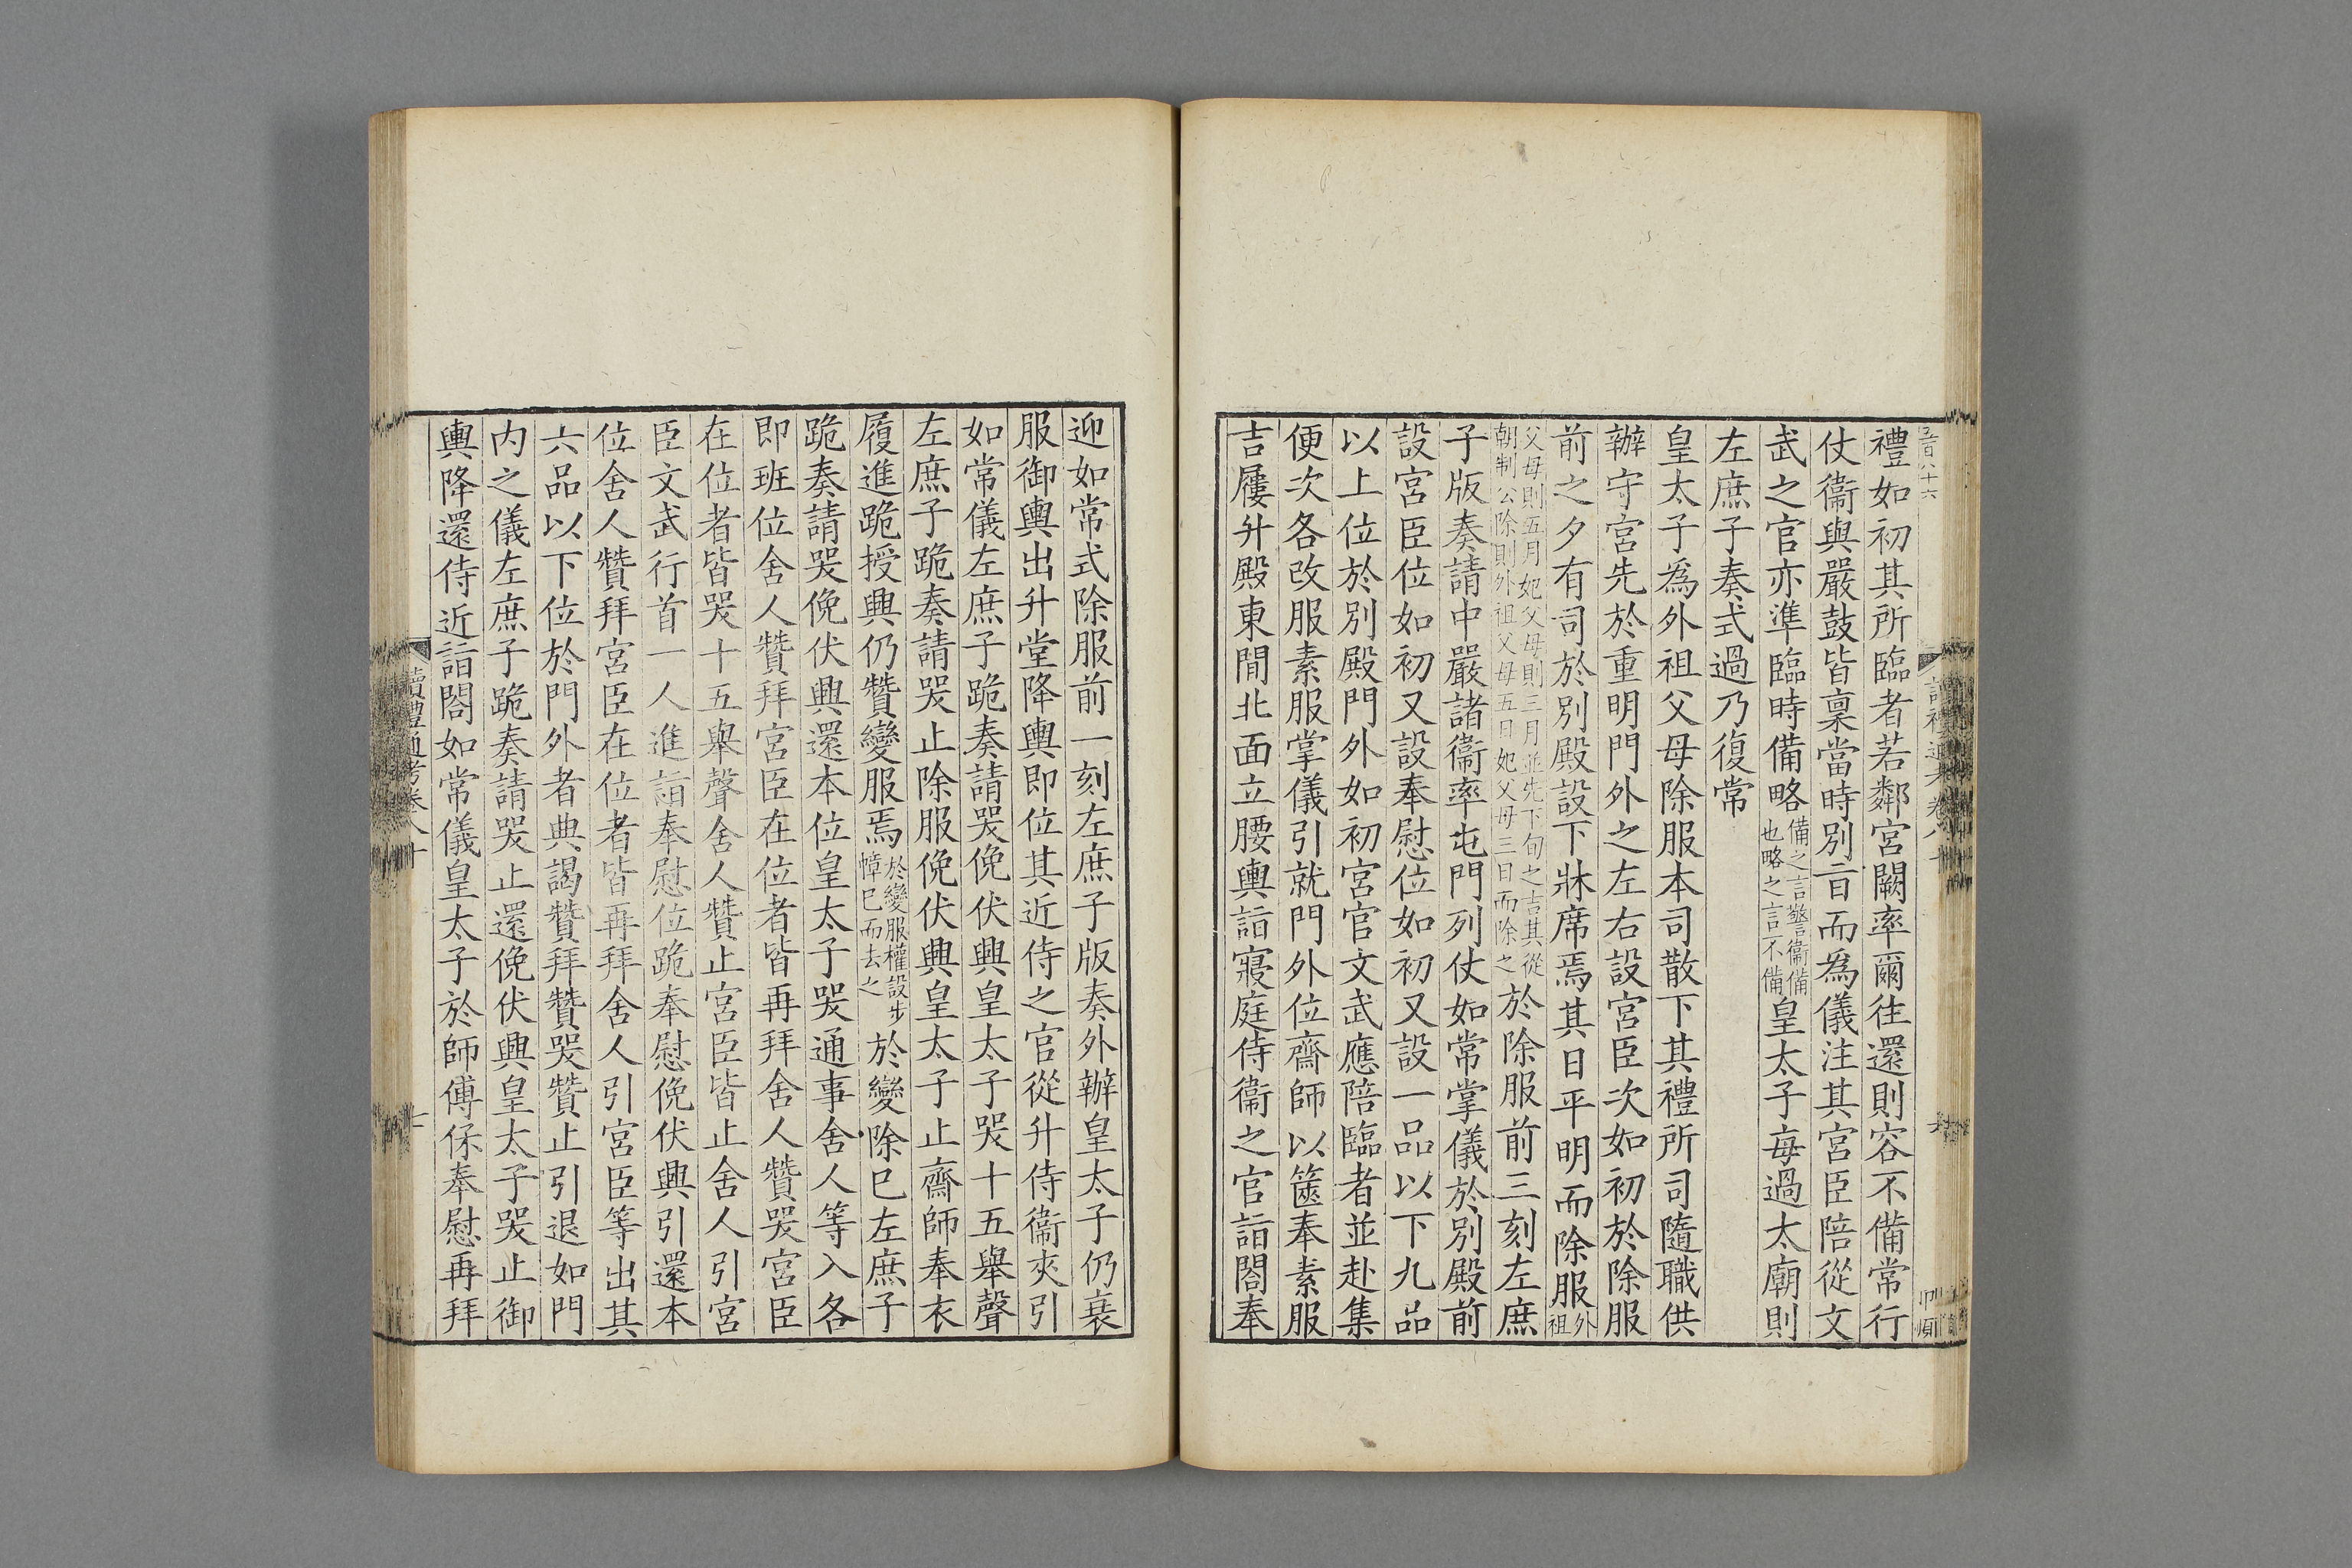 禮如初其所臨者若鄰宮闕率爾往還則容不備常行
仗衞與嚴鼓皆稟當時別㫖而為儀注其宮臣陪從文
武之官亦準臨時備略備之言警衞備也略之言不備皇太子每過太廟則
左庶子奏式過乃復常
皇太子為外祖父母除服本司散下其禮所司隨職供
辦守宮先於重明門外之左右設宮臣次如初於除服
前之夕有司於別殿設下牀席焉其日平明而除服外祖
父母則五月妃父母則三月並先下旬之吉其從朝制公除則外祖父母五日妃父母三日而除之於除服前三刻左庶
子版奏請中嚴諸衞率屯門列仗如常掌儀於別殿前
設宮臣位如初又設奉慰位如初又設一品以下九品
以上位於別殿門外如初宮官文武應陪臨者並赴集
便次各改服素服掌儀引就門外位齋師以篋奉素服
吉屨升殿東閒北面立腰輿詣寢庭侍衞之官詣閤奉
迎如常式除服前一刻左庶子版奏外辦皇太子仍衰
服御輿出升堂降輿即位其近侍之官從升侍衞夾引
如常儀左庶子跪奏請哭俛伏興皇太子哭十五舉聲
左庶子跪奏請哭止除服俛伏興皇太子止齋師奉衣
履進跪授興仍贊變服焉於變服權設步幛巳而去之於變除巳左庶子
跪奏請哭俛伏興還本位皇太子哭通事舍人等入各
即班位舍人贊拜宮臣在位者皆再拜舍人贊哭宮臣
在位者皆哭十五舉聲舍人贊止宮臣皆止舍人引宮
臣文武行首一人進詣奉慰位跪奉慰俛伏興引還本
位舍人贊拜宮臣在位者皆再拜舍人引宮臣等出其
六品以下位於門外者典謁贊拜贊哭贊止引退如門
内之儀左庶子跪奏請哭止還俛伏興皇太子哭止御
輿降還侍近詣閤如常儀皇太子於師傅保奉慰再拜
讀禮通考卷八十